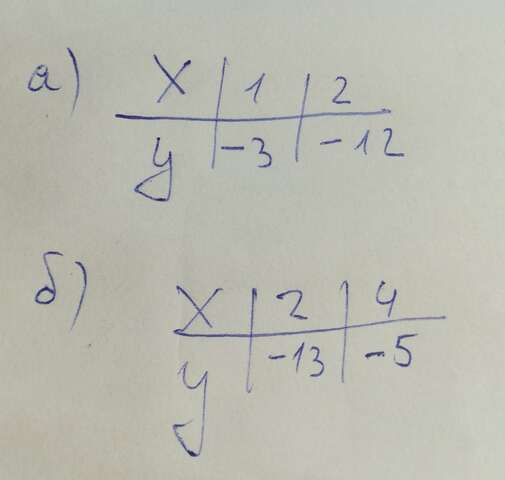 а) x | 1 | 2
y | -3 | -12
б) x | 2 | 4
y | -13 | -5